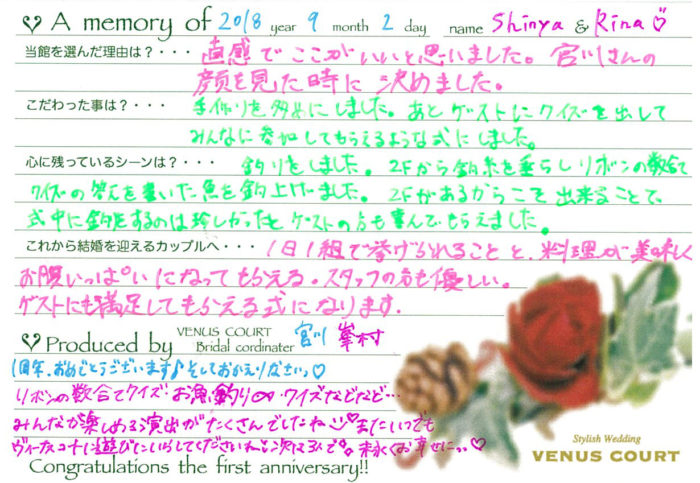 A memory of 2018 year 9 month 2 day name Shinya & Rina
当館を選んだ理由は？・・・ 直感でここがいいと思いました。宮川さんの
顔を見た時に決めました。
こだわった事は？・・・ 手作りを多めにしました。あとゲストにクイズを出して
みんなに参加してもらえるような式にしました。
心に残っているシーンは？・・・ 釣りをしました。2Fから釣糸を垂らしリボンの数合て
クイズの答えを書いた魚を釣り上げました。2Fがあるからこそ出来ることで、
式中に釣をするのは珍しかったとゲストの方も喜んでもらえました。
これから結婚を迎えるカップルへ・・・ 1日1組で挙げられることと、料理が美味しく
お腹いっぱいになってもらえる。スタッフの方も優しい。
ゲストにも満足してもらえる式になります。
Produced by VENUS COURT Bridal cordinater 宮川 峯村
1周年、おめでとうございます♪そしておかえりなさいっ♡
リボンの数合てクイズ・お魚釣り・クイズなどなど…
みんなが楽しめる演出がたくさんでしたね またいつでも
ヴィーナスコートに遊びにいらしてくださいね 次は3人で。末永くお幸せに…♡
Congratulations the first anniversary!!
Stylish Wedding
VENUS COURT